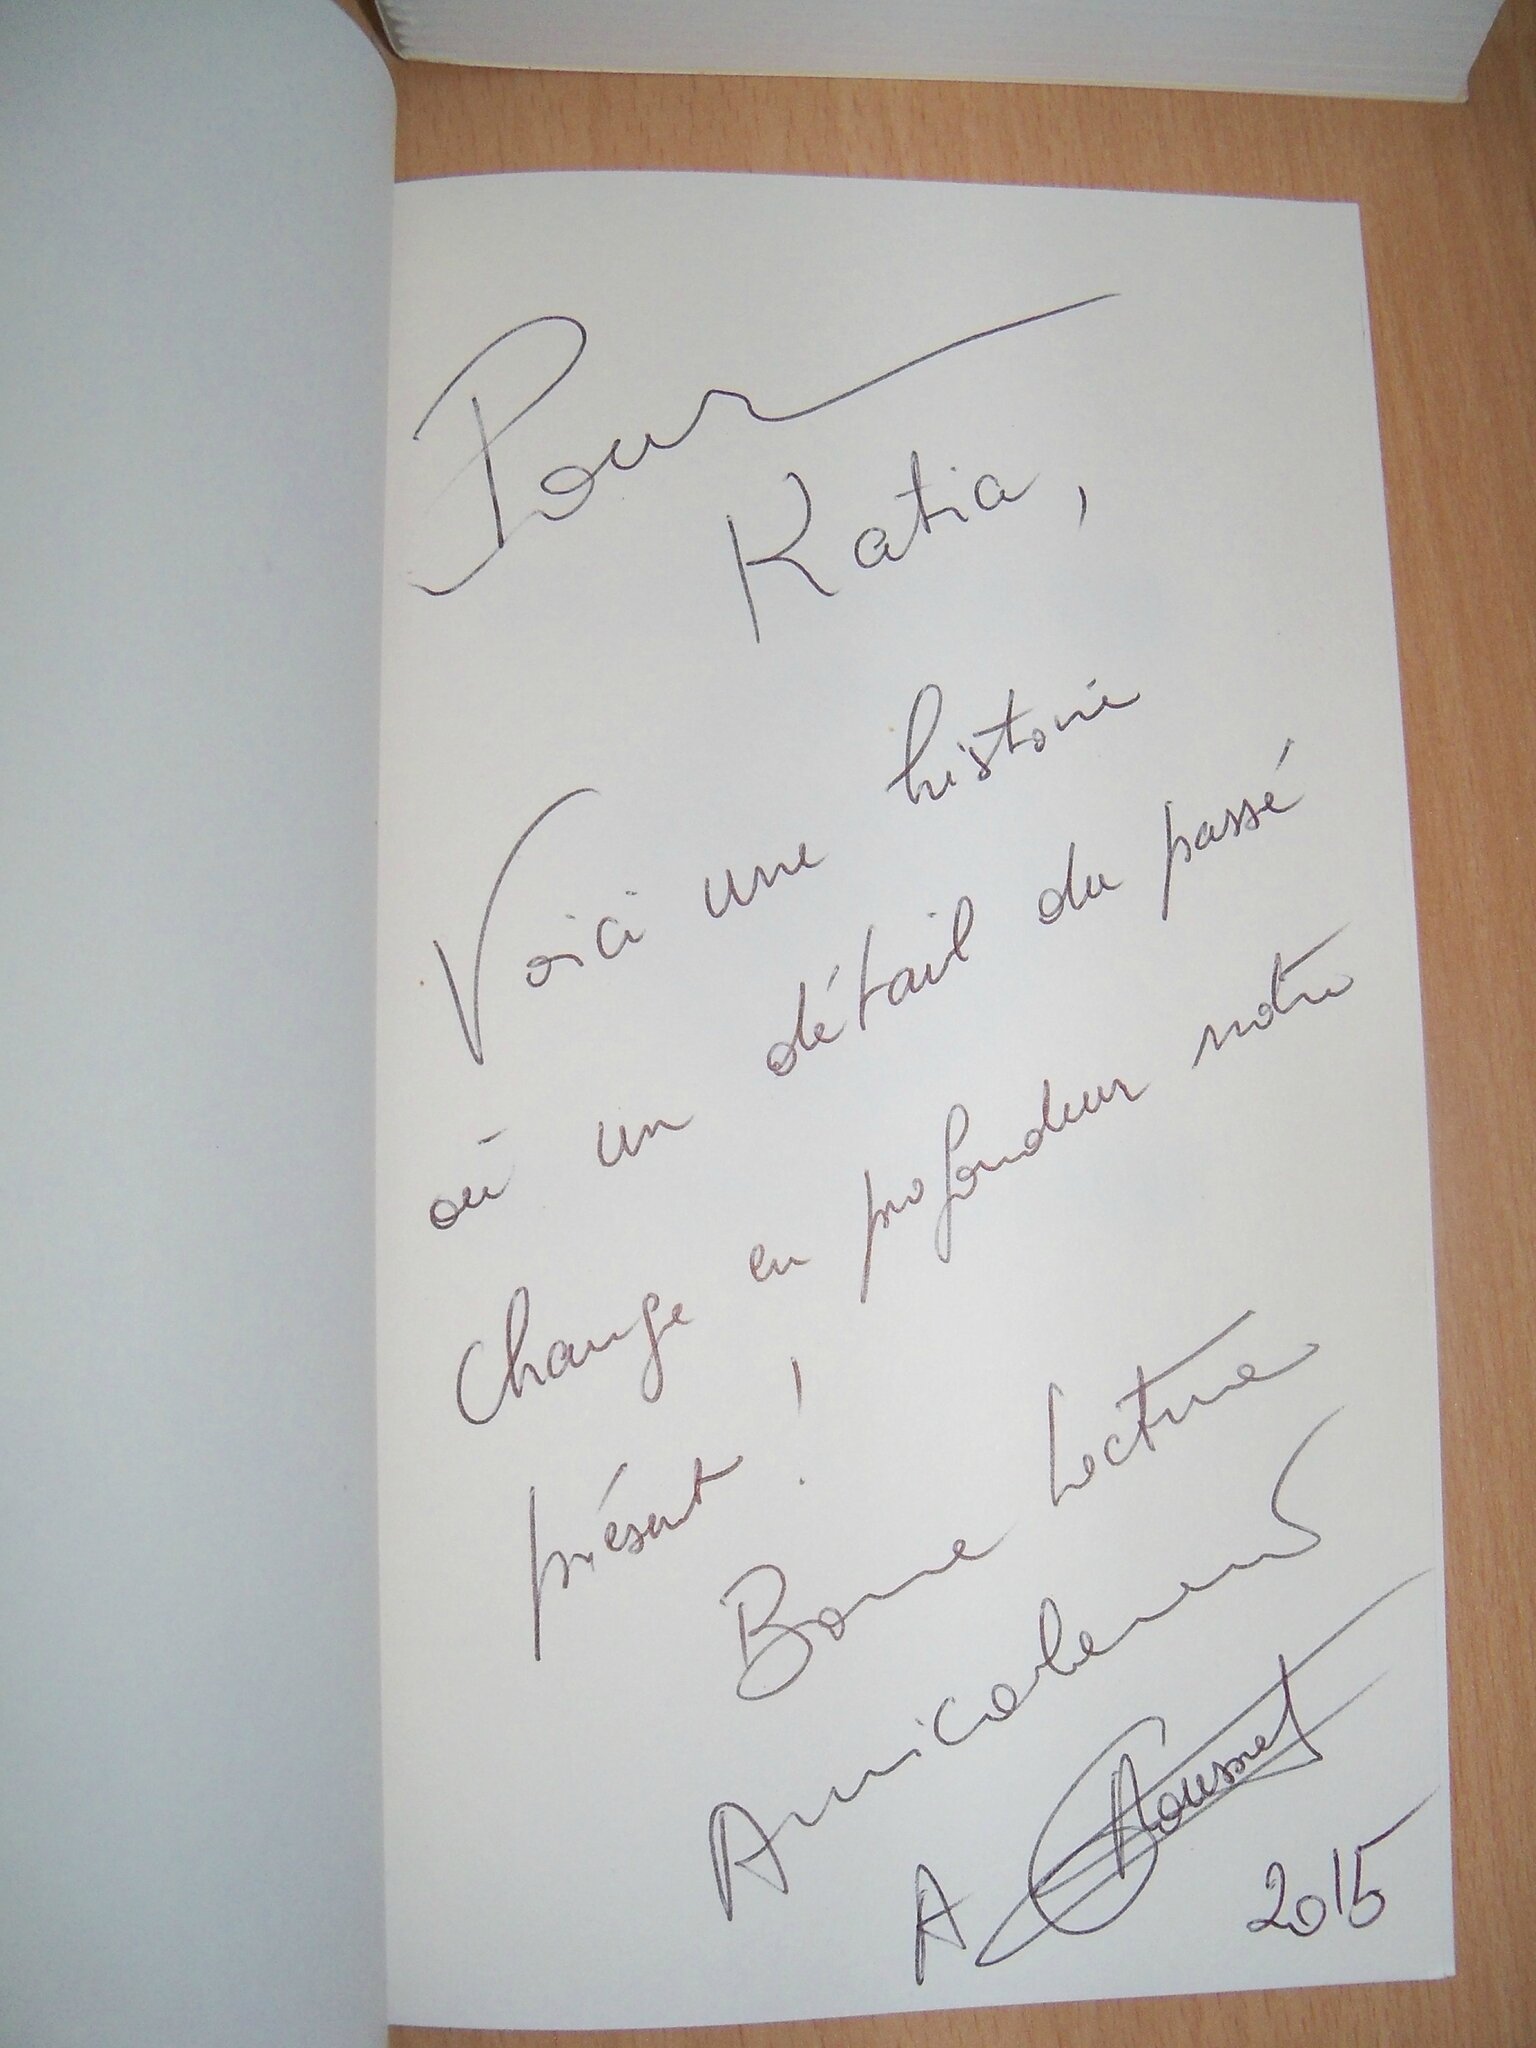 Pour
Katia,
Voici une histoire
où un détail du passé
change en profondeur notre
présent !
Bonne Lecture
Amicalement
A
2015